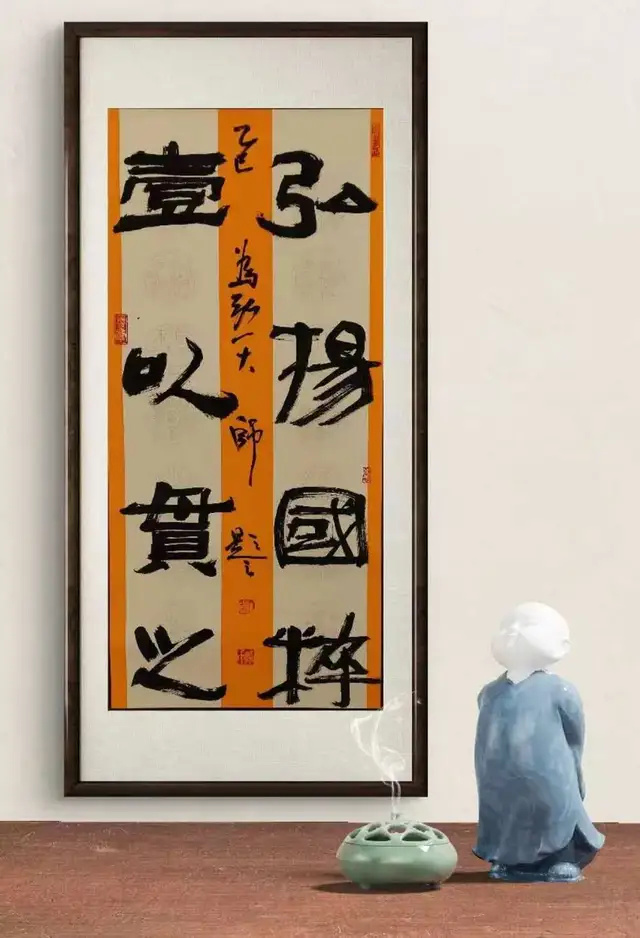 弘揚國粹
乙巳為弘一大師題
壹以貫之